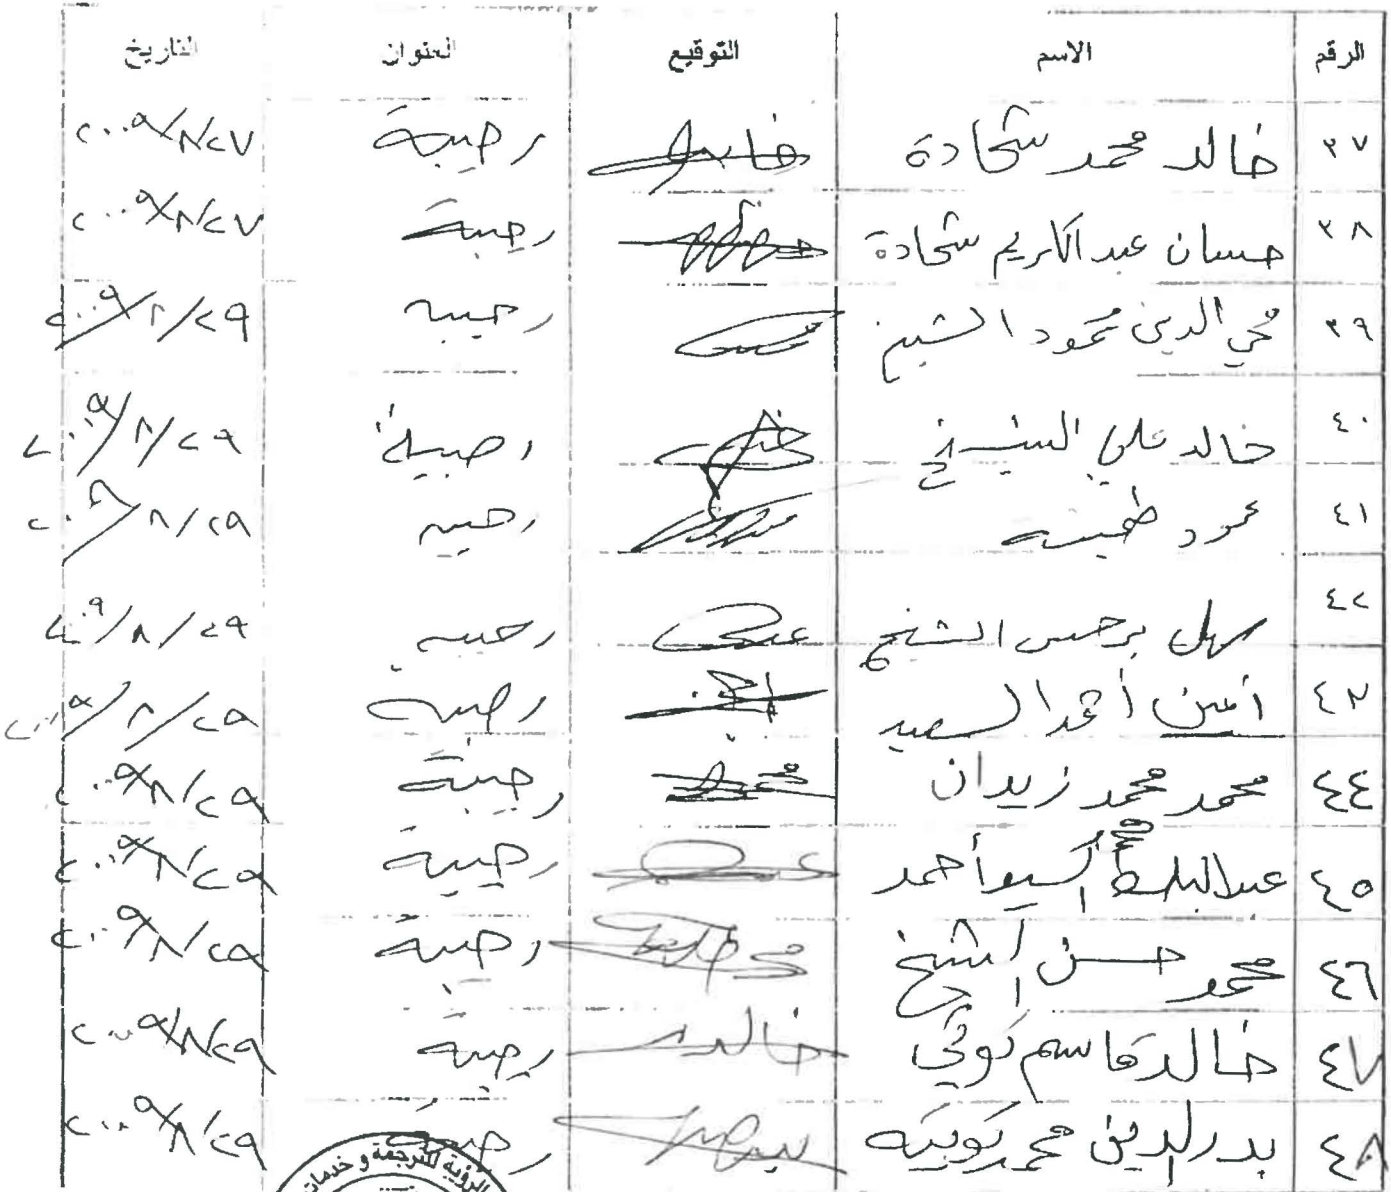 الرقم الاسم التوقيع العنوان التاريخ
٣٧ خالد محمد شحادة رحيبة ٢٠٠٩/٨/٢٧
٣٨ حسان عبد الكريم شحادة رحيبة ٢٠٠٩/٨/٢٧
٣٩ محي الدين محمود الشيخ رحيبه ٢٠٠٩/٨/٢٩
٤٠ خالد علي الشيخ ٢٠٠٩/٨/٢٩
٤١ محمود رحيبه ٢٠٠٩/٨/٢٩
٤٢ برجس الشيخ رحيبه ٢٠٠٩/٨/٢٩
٤٣ أمين أحمد السعيد رحيبه ٢٠٠٩/٨/٢٩
٤٤ محمد محمد زيدان رحيبة ٢٠٠٩/٨/٢٩
٤٥ أحمد رحيبة ٢٠٠٩/٨/٢٩
٤٦ محمود حسن الشيخ رحيبة ٢٠٠٩/٨/٢٩
٤٧ خالد قاسم خالد رحيبة ٢٠٠٩/٨/٢٩
٤٨ بدر الدين محمد رحيبة ٢٠٠٩/٨/٢٩
الرؤية للترجمة و خدمات